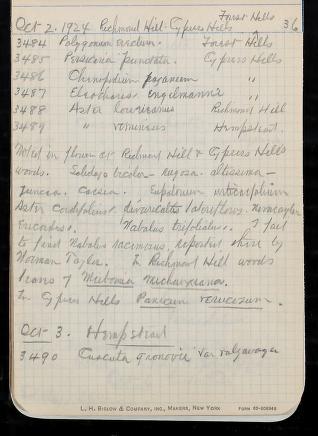 Forest Hills
Oct 2. 1924 Richmond Hill - Cypress Hills 36
3484 Polygonum Forest Hills
3485 Persicaria punctata. Cypress Hills
3486 Chenopodium paganum "
3487 Eleocharis engelmanni "
3488 Aster Richmond Hill
3489 " vimineus Hempstead.
Noted in flower at Richmond Hill & Cypress Hills
woods. Solidago bicolor - rugosa. altissima -
juncea. caesia. Eupatorium urticifolium
Aster cordifolius. divaricatus lateriflorus.
ericoides. Nabalus trifoliatus. I fail
to find Nabalus racemosus, reported there by
Norman Taylor. In Richmond Hill woods
Meibomia Michauxiana.
In Cypress Hills Panicum verrucosum.
Oct 3. Hempstead
3490 Cuscuta gronovii var vulgivaga
L. H. BIGLOW & COMPANY, INC., MAKERS, NEW YORK